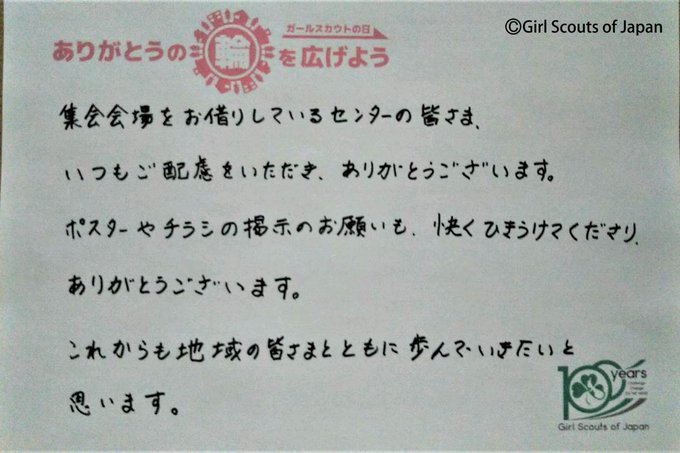 ©Girl Scouts of Japan
ガールスカウトの日
ありがとうの輪を広げよう
集会会場をお借りしているセンターの皆さま、
いつもご配慮をいただき、ありがとうございます。
ポスターやチラシの掲示のお願いも、快くひきうけてくださり、
ありがとうございます。
これからも地域の皆さまとともに歩んでいきたいと
思います。
100 years
Girl Scouts of Japan